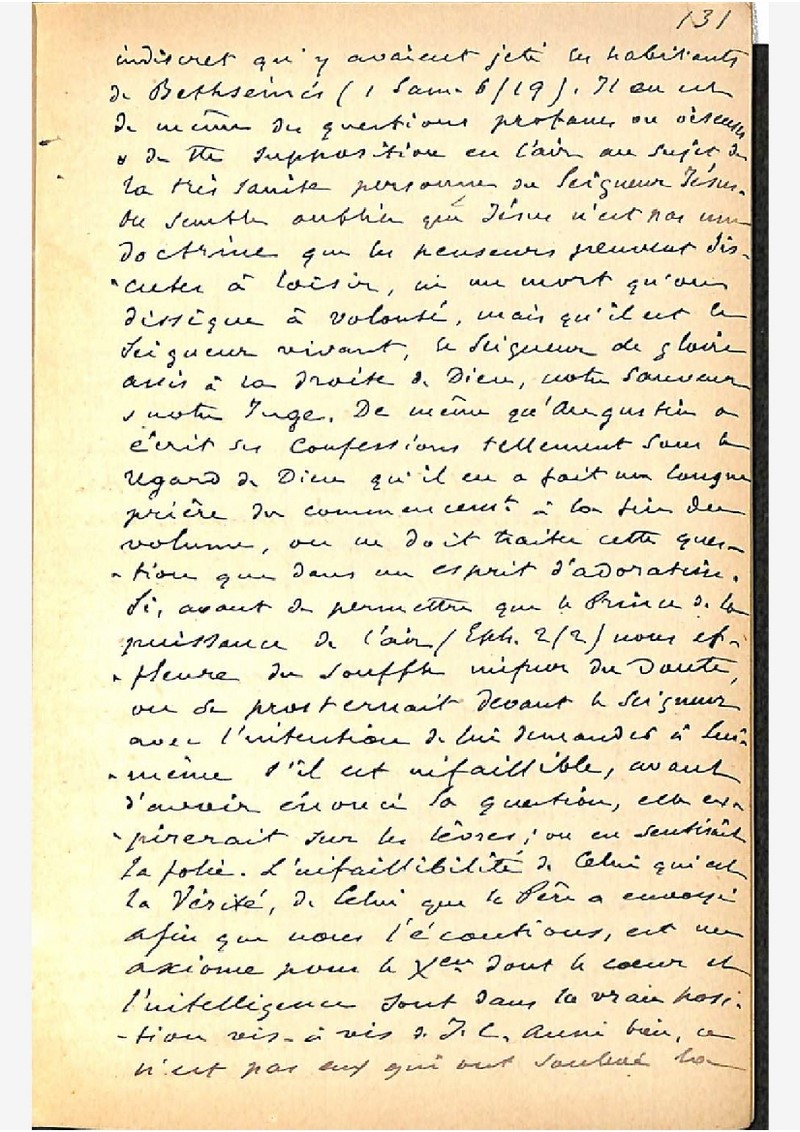 131
indiscret qu'y avaient jeté les habitants
de Bethsémès (1 Sam. 6/19). Il en est
de même des questions profanes ou oiseuses
& de tte supposition en l'air au sujet de
la très sainte personne du Seigneur Jésus.
On semble oublier que Jésus n'est pas une
doctrine que les penseurs peuvent dis-
-cuter à loisir, ni un mort qu'on
dissèque à volonté, mais qu'il est le
Seigneur vivant, le Seigneur de gloire
assis à la droite de Dieu, notre Sauveur
& notre Juge. De même qu'Augustin a
écrit ses Confessions tellement sous le
regard de Dieu qu'il en a fait une longue
prière du commencemt à la fin du
volume, on ne doit traiter cette ques-
-tion que dans un esprit d'adoration.
Si, avant de permettre que le Prince de la
puissance de l'air (Eph. 2/2) nous ef-
-fleure du souffle impur du Doute,
on se prosternait devant le Seigneur
avec l'intention de lui demander à lui-
-même s'il est infaillible, avant
d'avoir énoncé la question, elle ex-
-pirerait sur les lèvres; on en sentirait
la folie. L'infaillibilité de Celui qui est
la Vérité, de Celui que le Père a envoyé
afin que nous l'écoutions, est un
axiome pour le Xen dont le cœur et
l'intelligence sont dans la vraie posi-
-tion vis-à-vis de J. C. Aussi bien, ce
n'est pas eux qui ont soulevé la